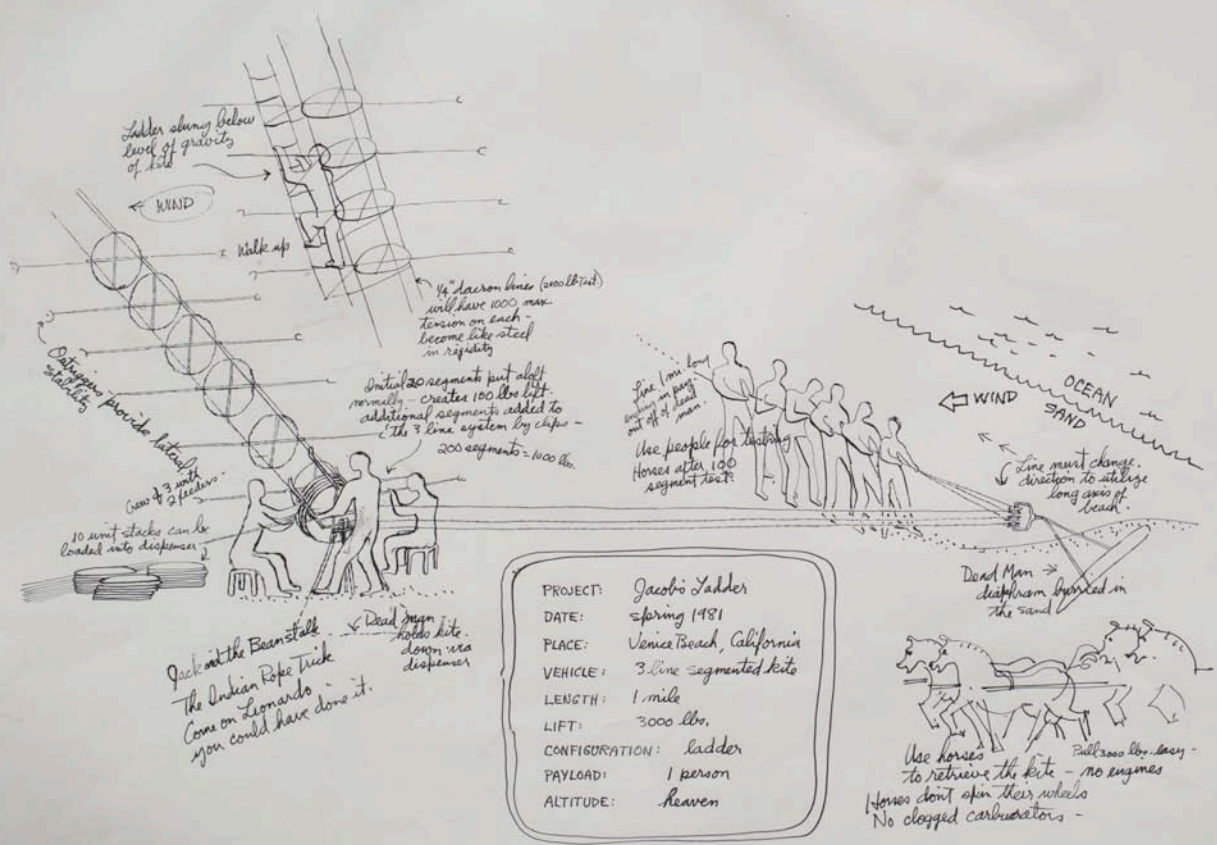 Ladder slung below
level of gravity
of kite
WIND
Walk up
1/4" dacron lines (2000 lb test.)
will have 1000 max
tension on each -
become like steel
in rigidity
Outriggers provide lateral
stability
Initial 20 segments put aloft
normally - creates 100 lbs lift.
additional segments added to
the 3 line system by clips -
200 segments = 1000 lbs.
Crew of 3 with
2 feeders
10 unit stacks can be
loaded into dispenser
Dead man
holds kite
down via
dispenser
Jack and the Beanstalk
The Indian Rope Trick
Come on Leonardo
you could have done it.
Line 1 mi. long
ending in pay-
out off of dead
man.
Use people for testing
Horses after 100
segment test.
WIND
OCEAN
SAND
Line must change
direction to utilize
long axis of
beach.
Dead Man
diaphram burried in
the sand
PROJECT: Jacob's Ladder
DATE: spring 1981
PLACE: Venice Beach, California
VEHICLE: 3-line segmented kite
LENGTH: 1 mile
LIFT: 3000 lbs.
CONFIGURATION: ladder
PAYLOAD: 1 person
ALTITUDE: heaven
Use horses Pull 3000 lbs. easy -
to retrieve the kite - no engines
Horses dont spin their wheels
No clogged carburators -